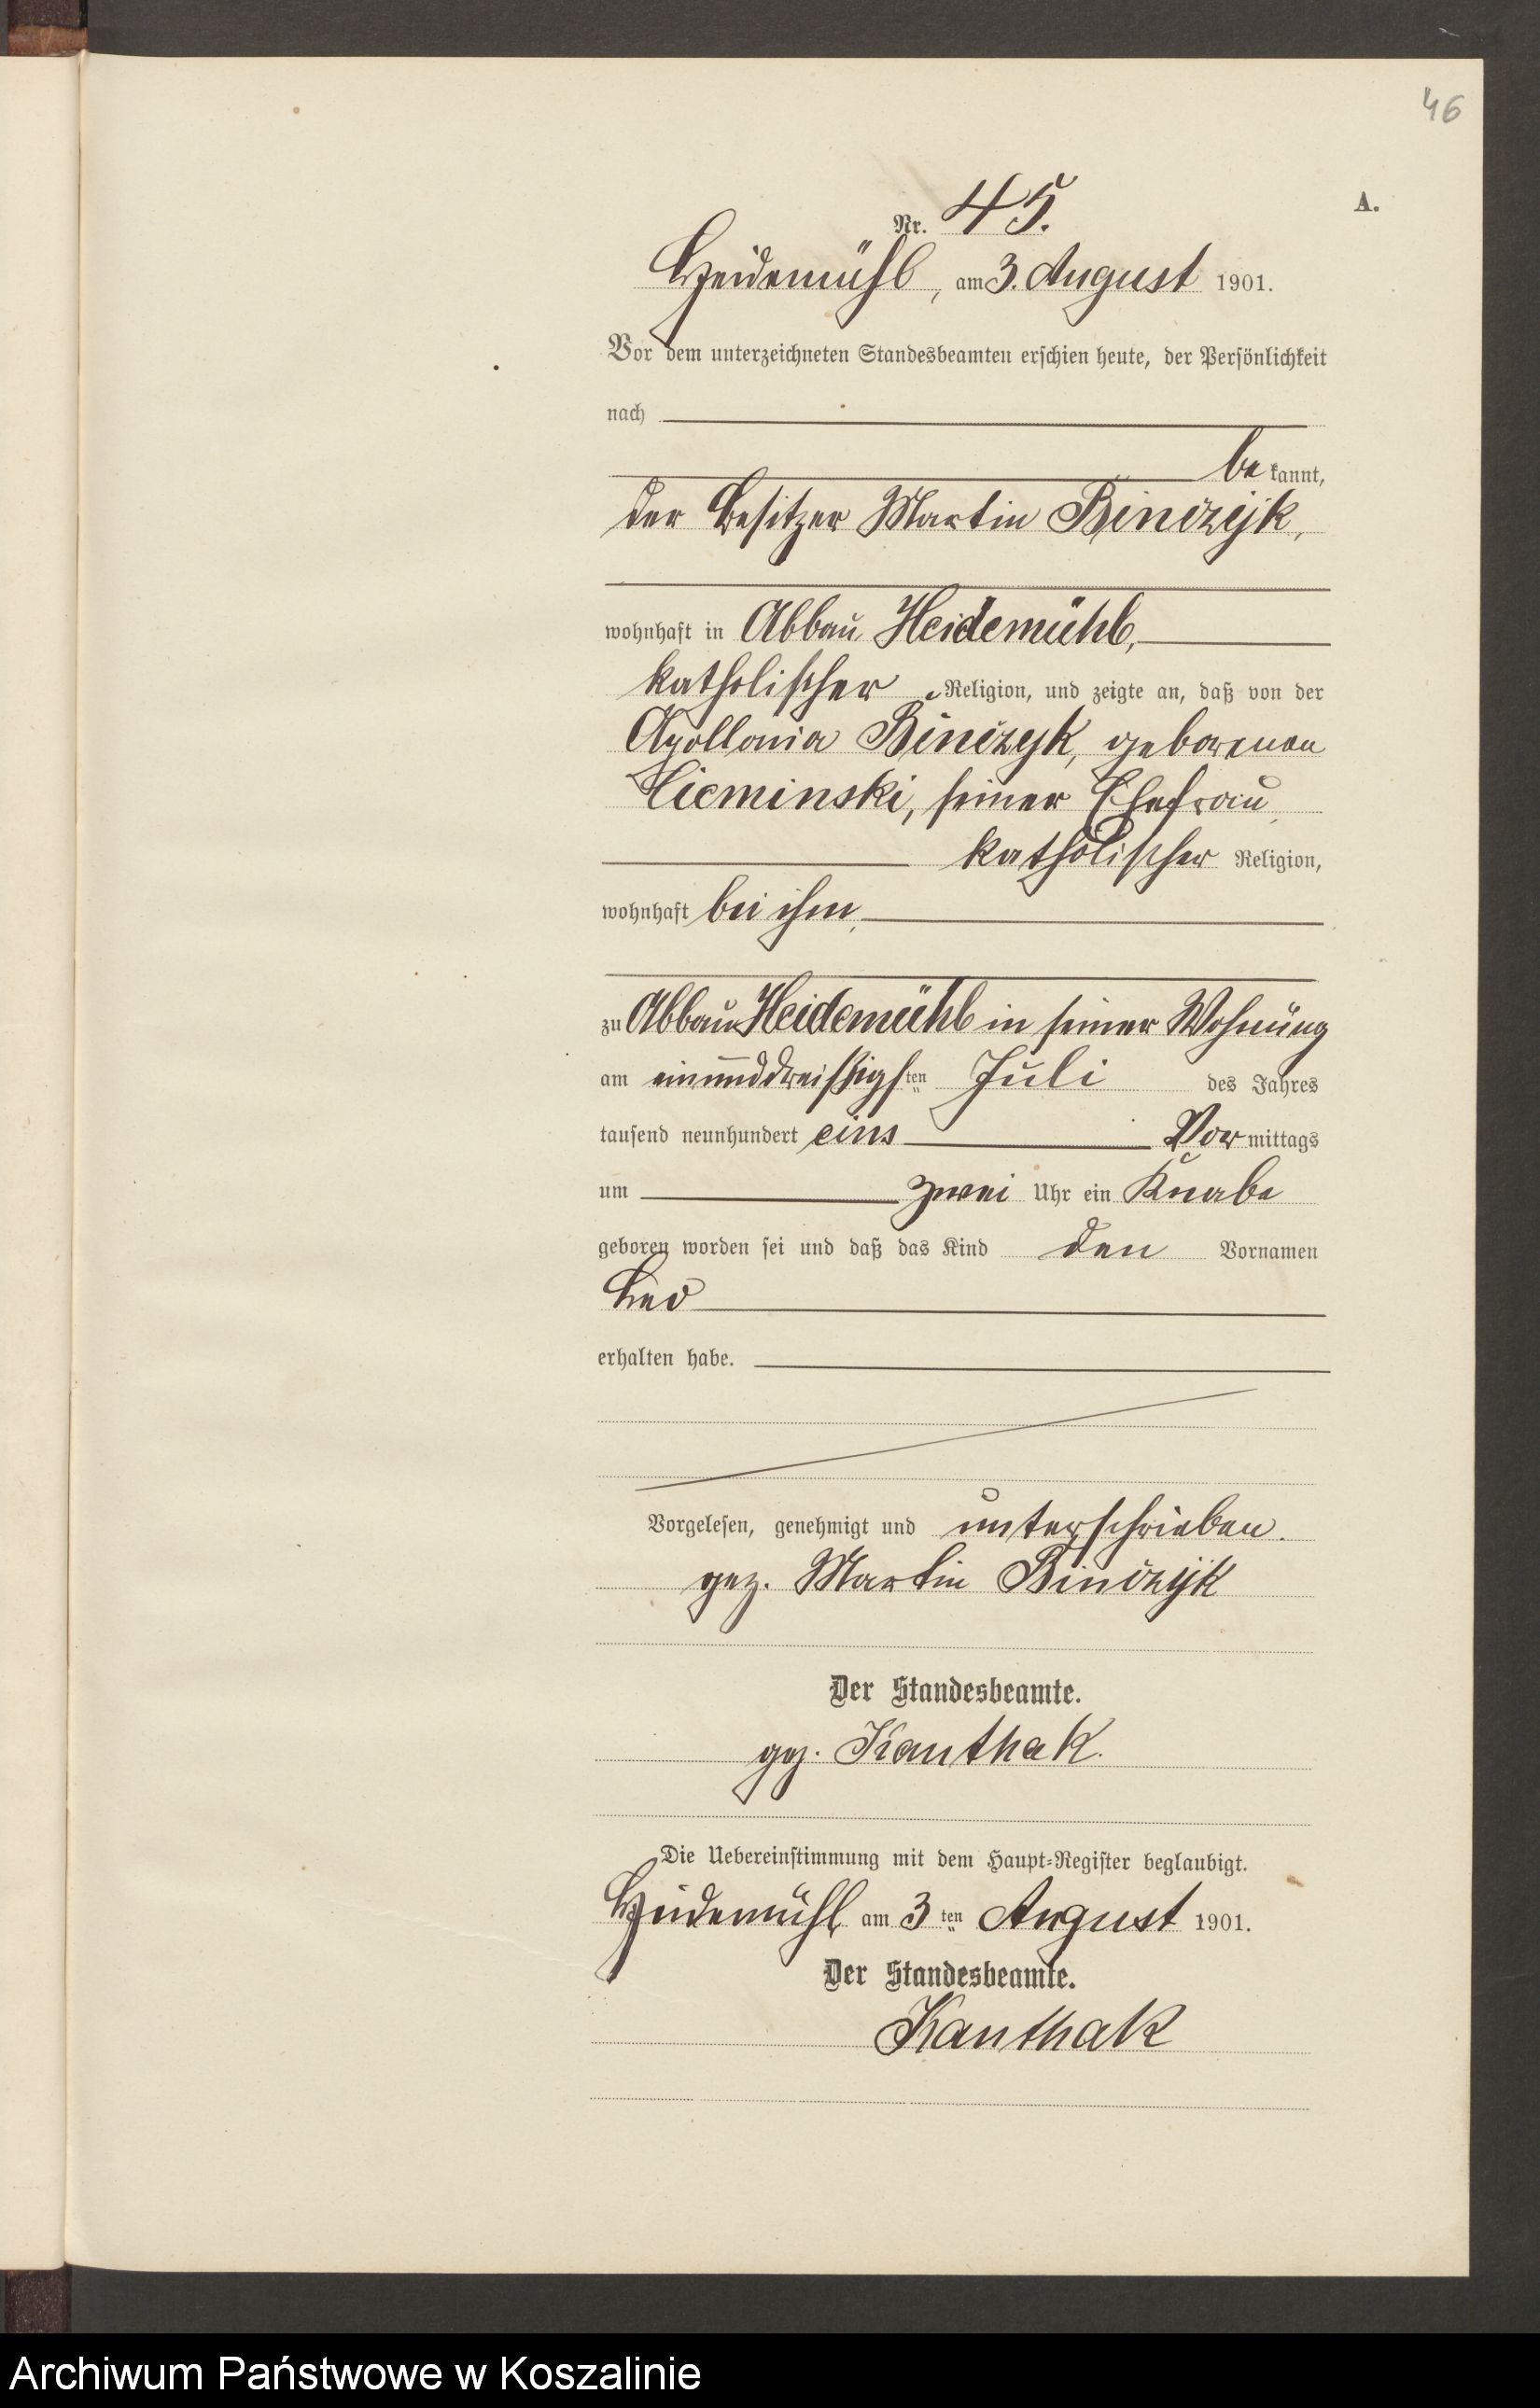 46
A.
Nr. 45.
Heidemühl, am 3. August 1901.
Vor dem unterzeichneten Standesbeamten erschien heute, der Persönlichkeit
nach
be kannt,
der Besitzer Martin Binczÿk,
wohnhaft in Abbau Heidemühl,
katholischer Religion, und zeigte an, daß von der
Apollonia Binczyk, geborenen
Cieminski, seiner Ehefrau,
katholischer Religion,
wohnhaft bei ihm,
zu Abbau Heidemühl in seiner Wohnung
am einunddreißigsten Juli des Jahres
tausend neunhundert eins Vor mittags
um zwei Uhr ein Knabe
geboren worden sei und daß das Kind den Vornamen
Leo
erhalten habe.
Vorgelesen, genehmigt und unterschrieben.
gez. Martin Binczÿk
Der Standesbeamte.
gez. Kanthak.
Die Uebereinstimmung mit dem Haupt-Register beglaubigt.
Heidemühl am 3ten August 1901.
Der Standesbeamte.
Kanthak
Archiwum Państwowe w Koszalinie